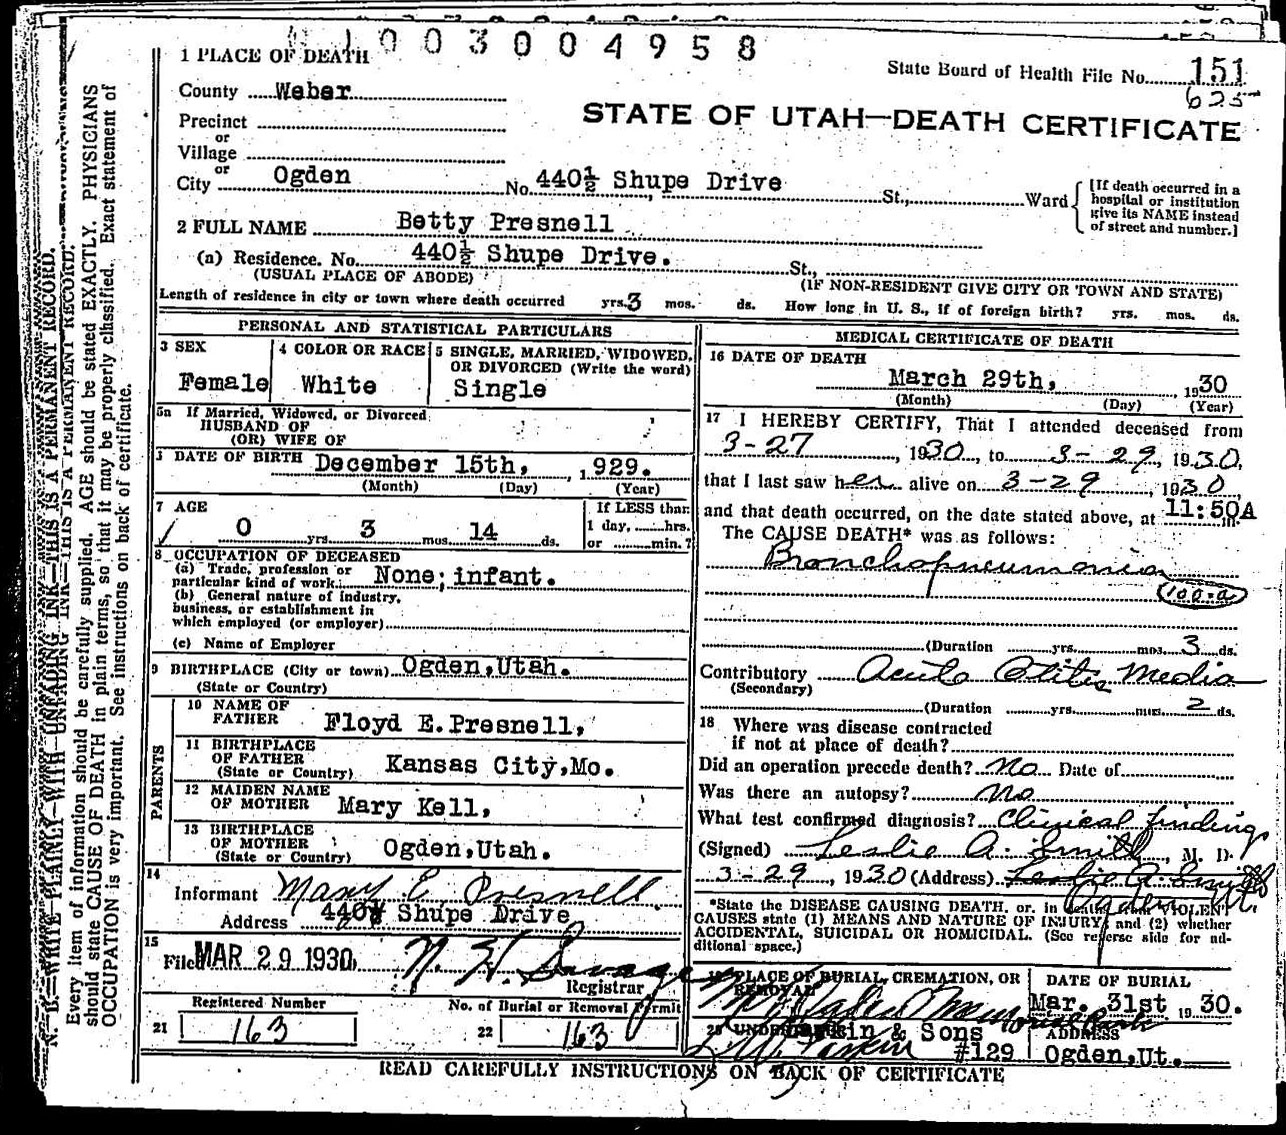 1003004958
1 PLACE OF DEATH
State Board of Health File No. 151
625
County Weber
STATE OF UTAH—DEATH CERTIFICATE
Precinct
or
Village
or
City Ogden No. 440½ Shupe Drive St., Ward
[If death occurred in a
hospital or institution
give its NAME instead
of street and number.]
2 FULL NAME Betty Presnell
(a) Residence. No. 440½ Shupe Drive. St.,
(USUAL PLACE OF ABODE) (IF NON-RESIDENT GIVE CITY OR TOWN AND STATE)
Length of residence in city or town where death occurred yrs. 3 mos. ds. How long in U. S., if of foreign birth? yrs. mos. ds.
PERSONAL AND STATISTICAL PARTICULARS
3 SEX
Female
4 COLOR OR RACE
White
5 SINGLE, MARRIED, WIDOWED,
OR DIVORCED (Write the word)
Single
5a If Married, Widowed, or Divorced
HUSBAND OF
(OR) WIFE OF
DATE OF BIRTH December 15th, 1929.
(Month) (Day) (Year)
7 AGE
0 yrs. 3 mos. 14 ds.
If LESS than
1 day, hrs.
or min.?
8 OCCUPATION OF DECEASED
(a) Trade, profession or
particular kind of work None; infant.
(b) General nature of industry,
business, or establishment in
which employed (or employer)
(c) Name of Employer
9 BIRTHPLACE (City or town) Ogden,Utah.
(State or Country)
PARENTS
10 NAME OF
FATHER Floyd E.Presnell,
11 BIRTHPLACE
OF FATHER
(State or Country) Kansas City,Mo.
12 MAIDEN NAME
OF MOTHER Mary Kell,
13 BIRTHPLACE
OF MOTHER
(State or Country) Ogden,Utah.
14
Informant Mary E. Presnell
Address 440½ Shupe Drive
15
Filed MAR 29 1930 N. H. Savage
Registrar
Registered Number
21 163
No. of Burial or Removal Permit
22 163
MEDICAL CERTIFICATE OF DEATH
16 DATE OF DEATH
March 29th, 1930
(Month) (Day) (Year)
17 I HEREBY CERTIFY, That I attended deceased from
3-27, 1930, to 3-29, 1930,
that I last saw her alive on 3-29, 1930,
and that death occurred, on the date stated above, at 11:50A m.
The CAUSE DEATH* was as follows:
Bronchopneumonia
100-a
(Duration yrs. mos. 3 ds.
Contributory Acute Otitis Media
(Secondary)
(Duration yrs. mos. 2 ds.
18 Where was disease contracted
if not at place of death?
Did an operation precede death? No Date of
Was there an autopsy? No
What test confirmed diagnosis? Clinical findings
(Signed) Leslie A. Smith, M. D.
3-29, 1930 (Address) Leslie A. Smith
Ogden, Ut.
*State the DISEASE CAUSING DEATH, or, in VIOLENT
CAUSES state (1) MEANS AND NATURE OF INJURY; and (2) whether
ACCIDENTAL, SUICIDAL OR HOMICIDAL. (See reverse side for ad-
ditional space.)
19 PLACE OF BURIAL, CREMATION, OR
REMOVAL
Ogden Memorial Park
DATE OF BURIAL
Mar. 31st 1930.
20 Larkin & Sons
#129
ADDRESS
Ogden,Ut.
READ CAREFULLY INSTRUCTIONS ON BACK OF CERTIFICATE
N. B.—WRITE PLAINLY WITH UNFADING INK—THIS IS A PERMANENT RECORD.
Every item of information should be carefully supplied. AGE should be stated EXACTLY. PHYSICIANS
should state CAUSE OF DEATH in plain terms, so that it may be properly classified. Exact statement of
OCCUPATION is very important. See instructions on back of certificate.